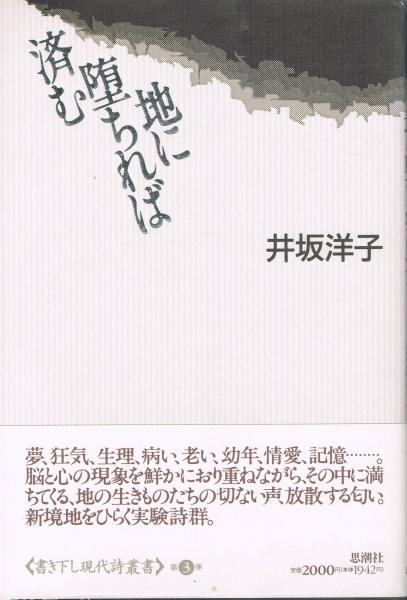 地に
堕ちれば
済む
井坂洋子
夢、狂気、生理、病い、老い、幼年、情愛、記憶……。
脳と心の現象を鮮かにおり重ねながら、その中に満
ちてくる、地の生きものたちの切ない声、放散する匂い。
新境地をひらく実験詩群。
《書き下し現代詩叢書》第3弾
思潮社
定価2000円(本体1942円)